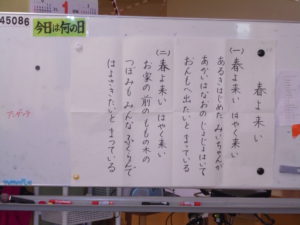 45086
今日は何の日
春よ来い
(一) 春よ来い はやく来い
あるきはじめた みいちゃんが
あかいはなおの じょじょはいて
おんもへ出たいと まっている
(二) 春よ来い はやく来い
お家の前の ももの木の
つぼみも みんな ふくらんで
はよさきたいと まっている